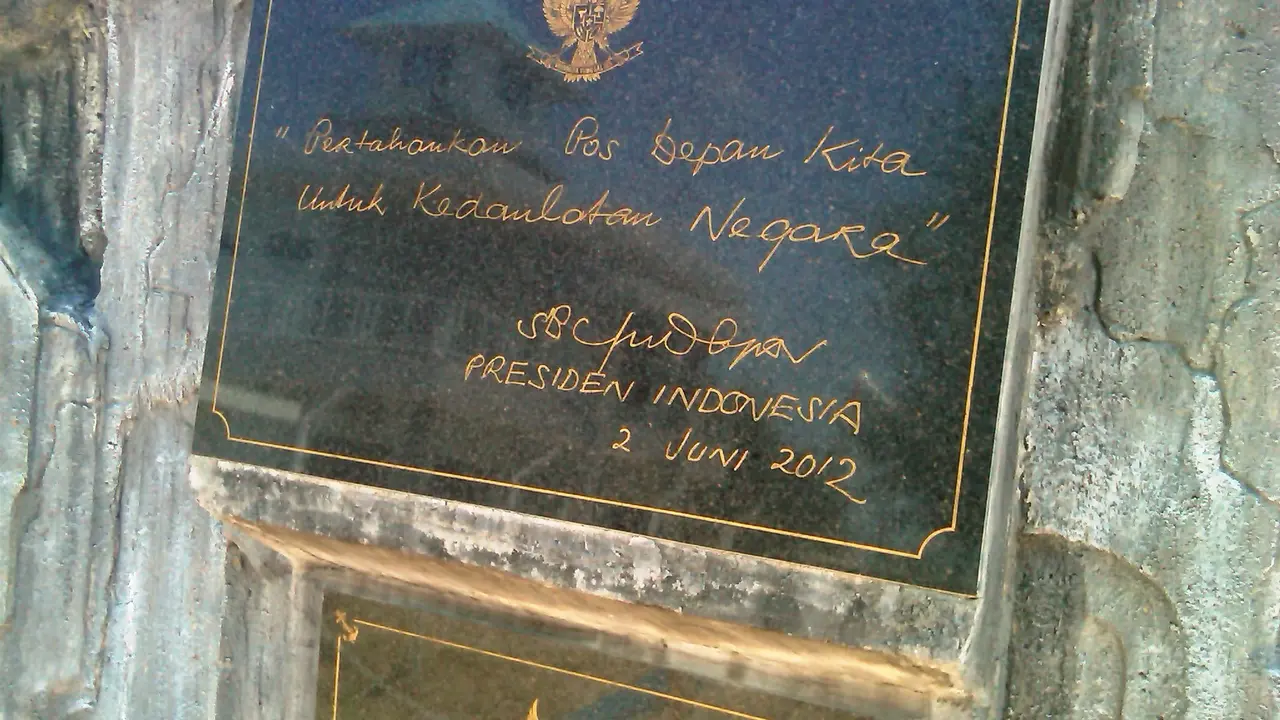 " Pertahankan Pos Depan Kita
Untuk Kedaulatan Negara "
PRESIDEN INDONESIA
2 JUNI 2012